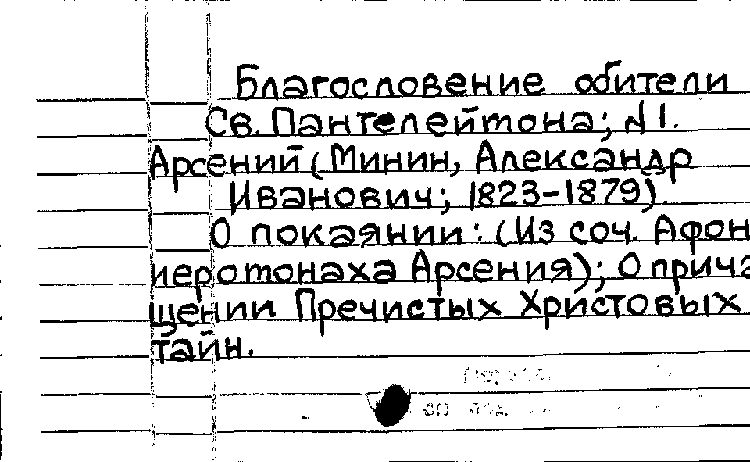 Благословение обители
Св. Пантелеймона; №1.
Арсений (Минин, Александр
Иванович; 1823-1879)
О покаянии: (Из соч. Афон
иеромонаха Арсения); О прича
щении Пречистых Христовых
тайн.